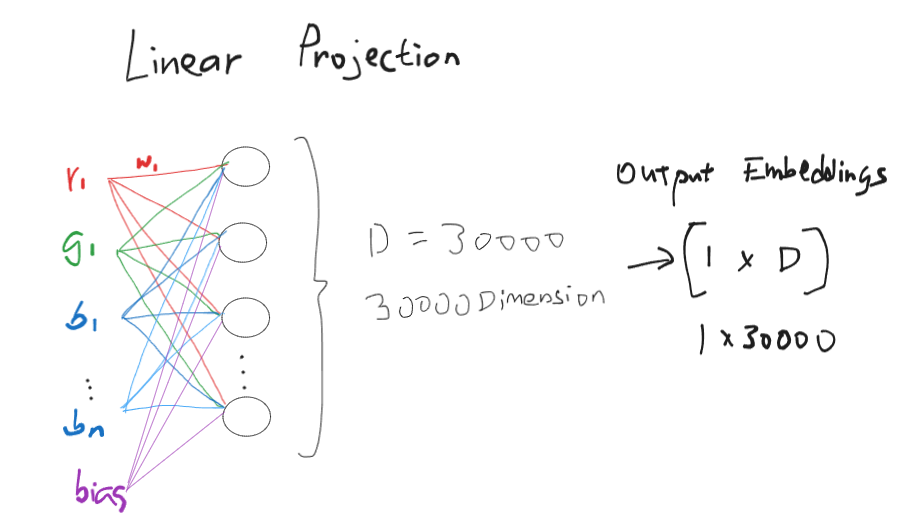 Linear Projection
r1
w1
g1
b1
⋮
bn
bias
⋮
D = 30000
30000 Dimension
Output Embeddings
→ [1 × D]
1 × 30000